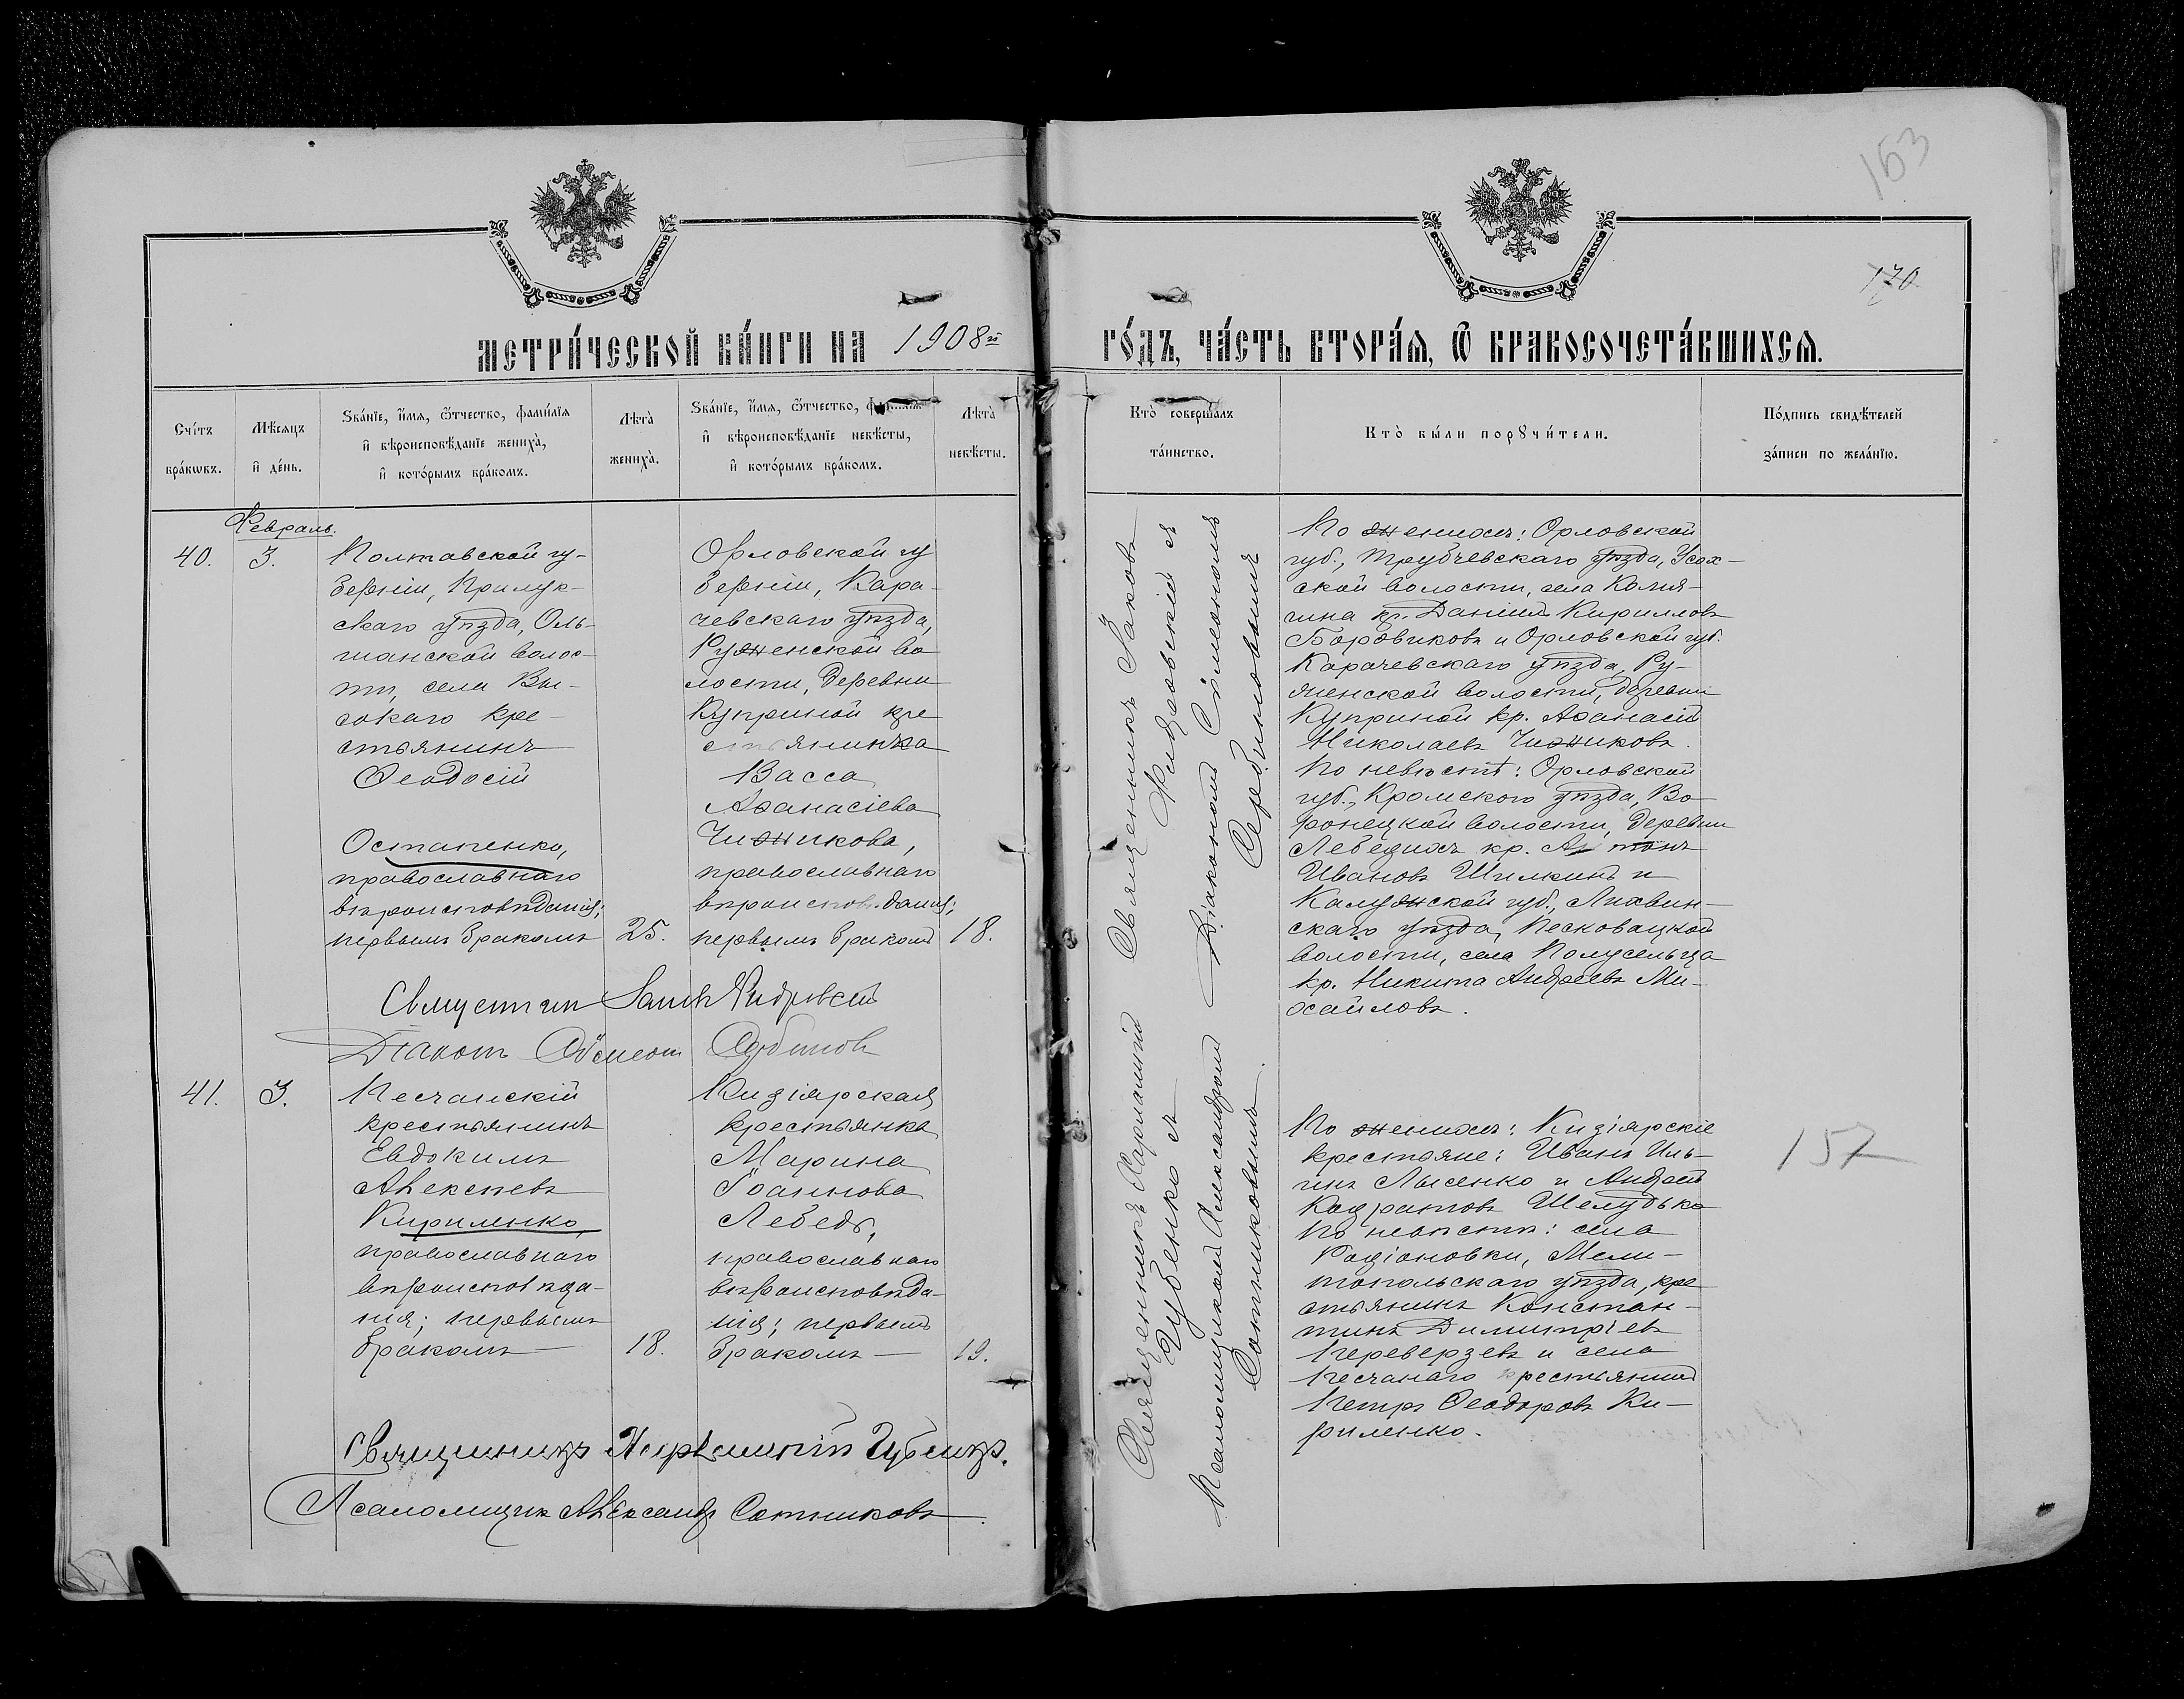 163
170.
МЕТРИ́ЧЕСКОЙ КНИ́ГИ НА 1908й ГО́ДЪ, ЧА́СТЬ ВТОРА́Я, Ѿ БРАКОСОЧЕТА́ВШИХСЯ.
Сче́тъ
бра́кѡвъ.
Мѣ́сяцъ
и҆ де́нь.
Зва́нїе, и҆́мя, ѻ҆́тчество, фами́лїя
и҆ вѣроисповѣ́данїе жениха̀,
и҆ кото́рымъ бра́комъ.
Лѣта̀
жениха̀.
Зва́нїе, и҆́мя, ѻ҆́тчество, фами́лїя
и҆ вѣроисповѣ́данїе невѣ́сты,
и҆ кото́рымъ бра́комъ.
Лѣта̀
невѣ́сты.
Кто̀ соверша́лъ
та́инство.
Кто̀ бы́ли порꙋчи́тели.
По́дпись свидѣ́телей
за́писи по жела́нїю.
Февраль.
40.
3.
Полтавской гу-
берніи, Прилук-
скаго уѣзда, Оль-
шанской волос-
ти, села Вы-
сокаго кре-
стьянинъ
Ѳеодосій
Остапенко,
православнаго
вѣроисповѣданія;
первымъ бракомъ
25.
Орловской гу
берніи, Кара-
чевскаго уѣзда,
Руженской во
лости, деревни
Куприной кре
стьянинка
Васса
Аѳанасіева
Чижикова,
православнаго
вѣроисповѣданія;
первымъ бракомъ
18.
Священникъ Іаковъ
Фидровскій съ
Діакономъ Сѵмеономъ
Сербиновымъ
По женихѣ: Орловской
губ., Трубчевскаго уѣзда, Усох-
ской волости, села Коля-
гина кр. Даніилъ Кирилловъ
Боровиковъ и Орловской губ.
Карачевскаго уѣзда, Ру-
женской волости, деревни
Куприной кр. Аѳанасій
Николаевъ Чижиковъ.
По невѣстѣ: Орловской
губ., Кромского уѣзда, Во
ронецкой волости, деревни
Лебедихъ кр. Антонъ
Ивановъ Шилкинъ и
Калужской губ., Лихвин-
скаго уѣзда, Песковацкой
волости, села Полусельца
кр. Никита Андреевъ Ми-
хайловъ.
Священникъ Іаковъ Фидровскій
Діаконъ Сѵмеонъ Сербиновъ
41.
3.
Песчанскій
крестьянинъ
Евдокимъ
Алексѣевъ
Кириленко,
православнаго
вѣроисповѣда-
нія; первымъ
бракомъ —
18.
Кизіярская
крестьянка
Марина
Іоаннова
Лебедь,
православнаго
вѣроисповѣда-
нія; первымъ
бракомъ —
19.
Священникъ Харлампій
Губенко съ
Псаломщикомъ Александромъ
Сотниковымъ.
По женихѣ: Кизіярскіе
крестьяне: Иванъ Иль-
инъ Лысенко и Андрей
Кодратовъ Шелудько
По невѣстѣ: села
Родіоновки, Мели-
топольскаго уѣзда, кре
стьянинъ Констан-
тинъ Димитріевъ
Переверзевъ и села
Песчанаго крестьянинъ
Петръ Ѳеодоровъ Ки-
риленко.
157
Священникъ Харлампій Губенко.
Псаломщик Александръ Сотниковъ.